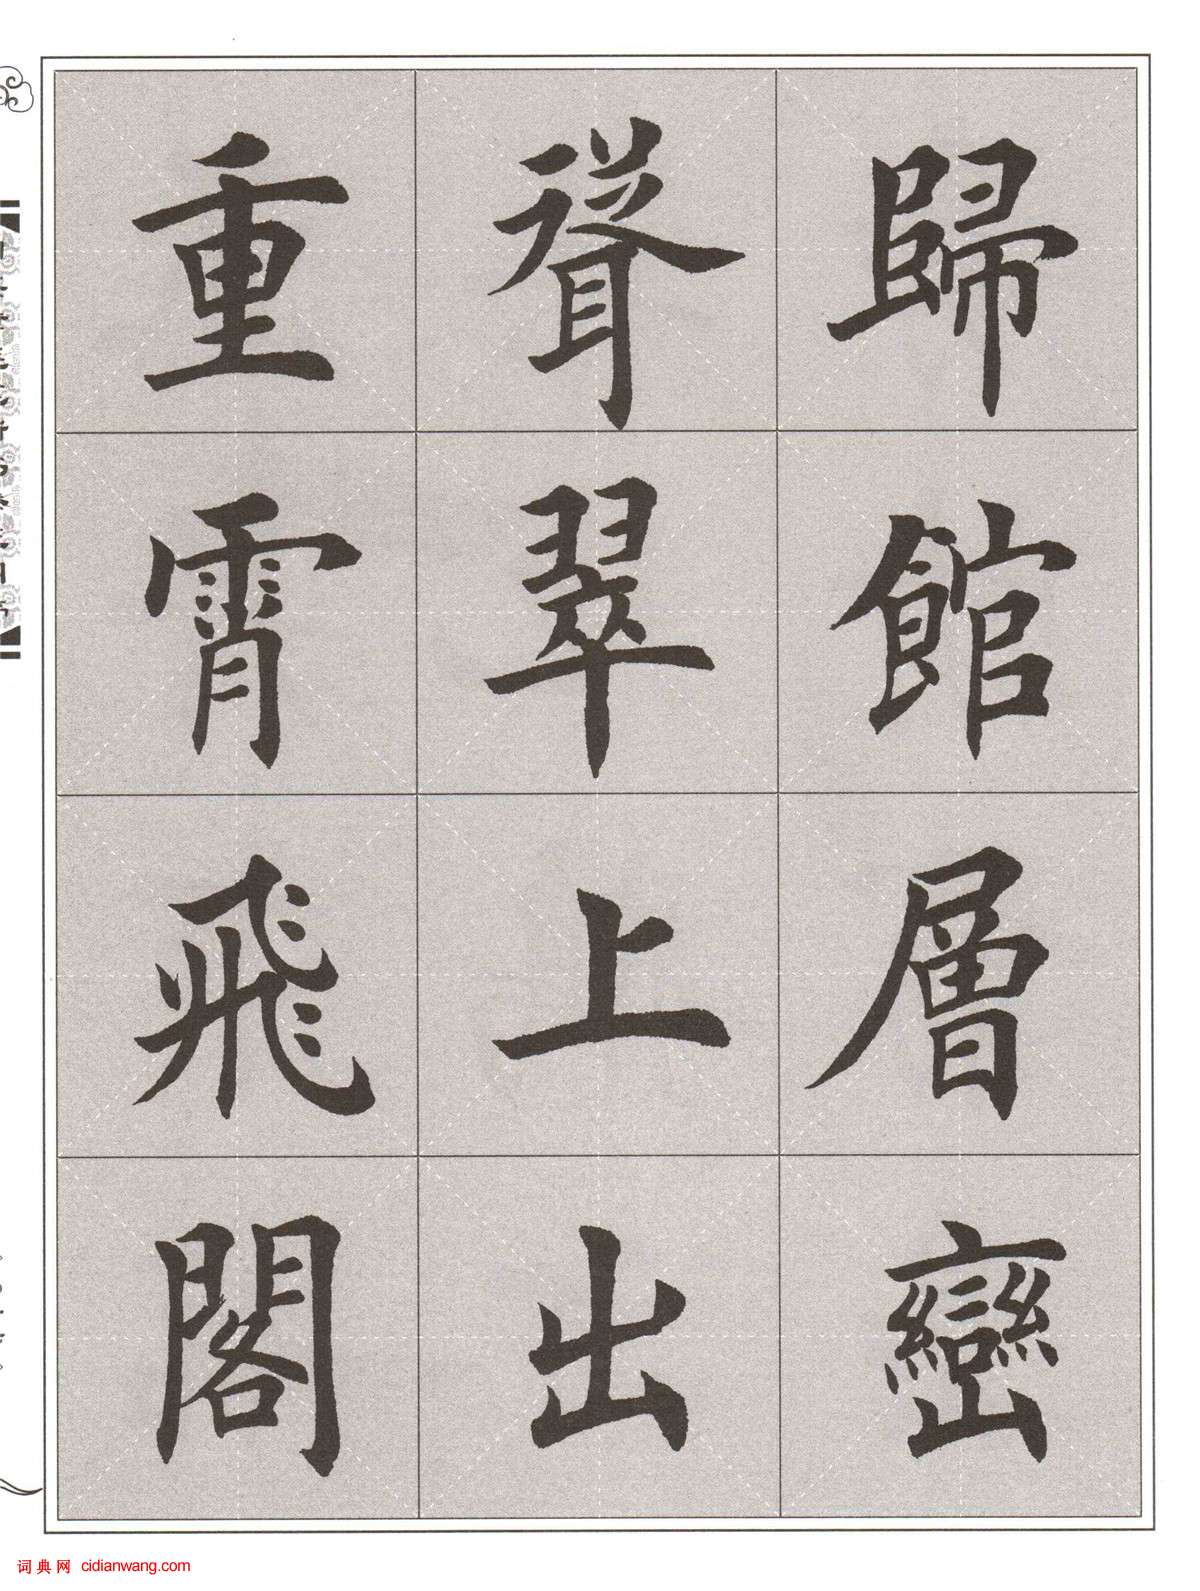 歸館層巒
聳翠上出
重霄飛閣
词典网 cidianwang.com